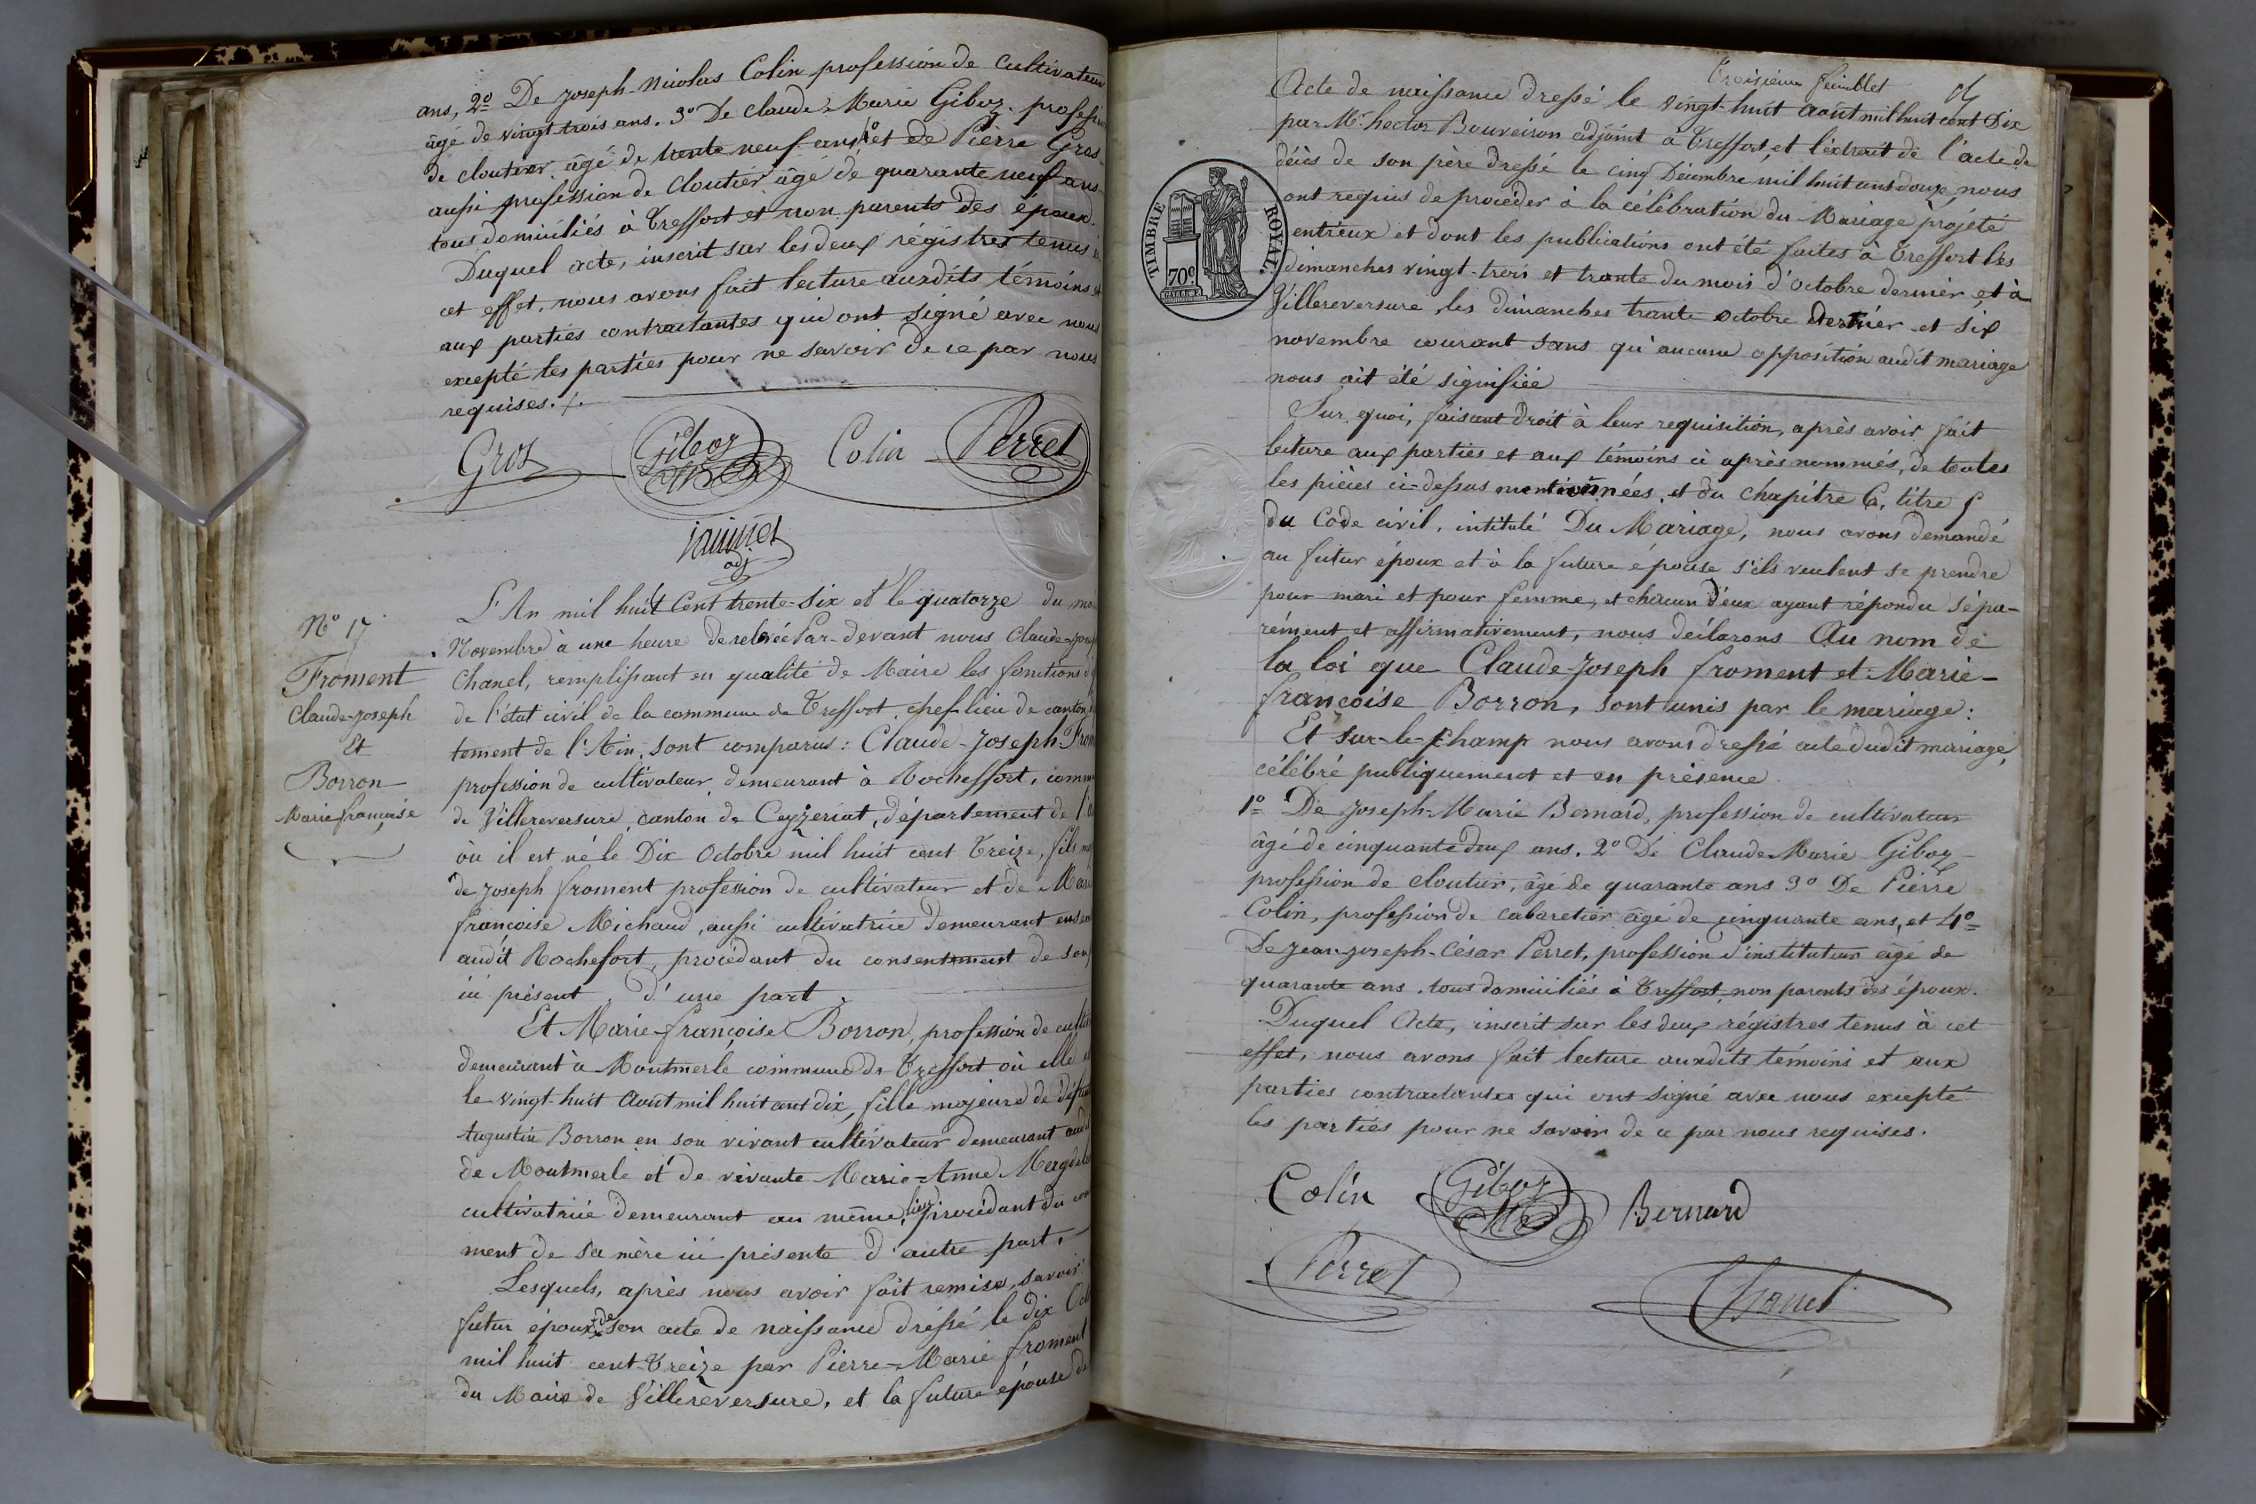 ans, 2º De Joseph-Nicolas Colin profession de cultivateur
âgé de vingt trois ans. 3º De Claude-Marie Giboz. profess
de cloutier, âgé de trente neuf ans, 4º et de Pierre Gros
aussi profession de cloutier, âgé de quarante neuf ans
tous domiciliés à Treffort et non parents des époux.
Duquel acte, inscrit sur les deux régistres tenus à
cet effet, nous avons fait lecture auxdits témoins et
aux parties contractantes qui ont signé avec nous
excepté les parties pour ne savoir de ce par nous
requises./.
Gros Giboz Colin Perret
adj
Nº 17
Froment
Claude-Joseph
Et
Borron
Marie françoise
L'An mil huit Cent trente-six et le quatorze du mo
Novembre à une heure de relevée Par-devant nous Claude-Josep
Chanel, remplissant en qualité de Maire les fonctions d'
de l'état civil de la commune de Treffort, chef-lieu de canton,
tement de l'Ain, sont comparus: Claude-Joseph From
profession de cultivateur, demeurant à Rocheffort, comm
de Villereversure, canton de Ceyzeriat, département de l'A
où il est né le Dix Octobre mil huit cent Treize, fils m
de Joseph froment profession de cultivateur et de Marie
françoise Michaud, aussi cultivatrice demeurant ensem
audit Rochefort, procédant du consentement de son
ici présent, d'une part.
Et Marie-françoise Borron, profession de culti
demeurant à Montmerle commune de Treffort où elle e
le vingt-huit Août mil huit cent dix, fille majeure de défu
Augustin Borron en son vivant cultivateur demeurant aud
de Montmerle et de vivante Marie-Anne Magdele
cultivatrice demeurant au même lieu, procédant du con
ment de sa mère ici présente d'autre part.
Lesquels, après nous avoir fait remise, savoir
futur époux de son acte de naissance dréssé le dix Oct
mil huit cent Treize par Pierre-Marie froment
du Maire de Villereversure, et la future épouse de
Troisième feuillet
Acte de naissance dressé le vingt-huit août mil huit cent Dix
par Mr. hector Bouveiron adjoint à Treffort, et l'extrait de l'acte de
décès de son père dressé le cinq Décembre mil huit cent douze, nous
ont requis de procéder à la célébration du Mariage projété
entr'eux et dont les publications ont été faites à Treffort les
dimanches vingt-trois et trante du mois d'Octobre dernier, et à
Villereversure, les dimanches trante octobre dernier et six
novembre courant sans qu'aucune opposition audit mariage
nous ait été signifiée
TIMBRE ROYAL.
70c
Sur quoi, faisant droit à leur requisition, après avoir fait
lecture aux parties et aux témoins ci après nommés, de toutes
les pièces ci-dessus mentionnées, et du chapitre 6, titre 5
du Code civil, intitulé Du Mariage, nous avons demandé
au futur époux et à la future épouse s'ils veulent se prendre
pour mari et pour femme, et chacun d'eux ayant répondu sépa-
rément et affirmativement, nous déclarons Au nom de
la loi que Claude-Joseph froment et Marie-
françoise Borron, sont unis par le mariage:
Et sur-le-champ nous avons dressé acte dudit mariage,
célébré publiquement et en présence
1º De Joseph-Marie Bernard, profession de cultivateur
âgé de cinquante deux ans. 2º De Claude Marie Giboz
profession de cloutier, âgé de quarante ans 3º De Pierre
Colin, profession de cabaretier âgé de cinquante ans, et 4º
De Jean-Joseph-César Perret, profession d'instituteur âgé de
quarante ans. tous domiciliés à Treffort, non parents des époux.
Duquel Acte, inscrit sur les deux régistres tenus à cet
effet, nous avons fait lecture auxdits témoins et aux
parties contractantes qui ont signé avec nous excepté
les parties pour ne savoir de ce par nous requises.
Colin Giboz Bernard
Perret Chanel